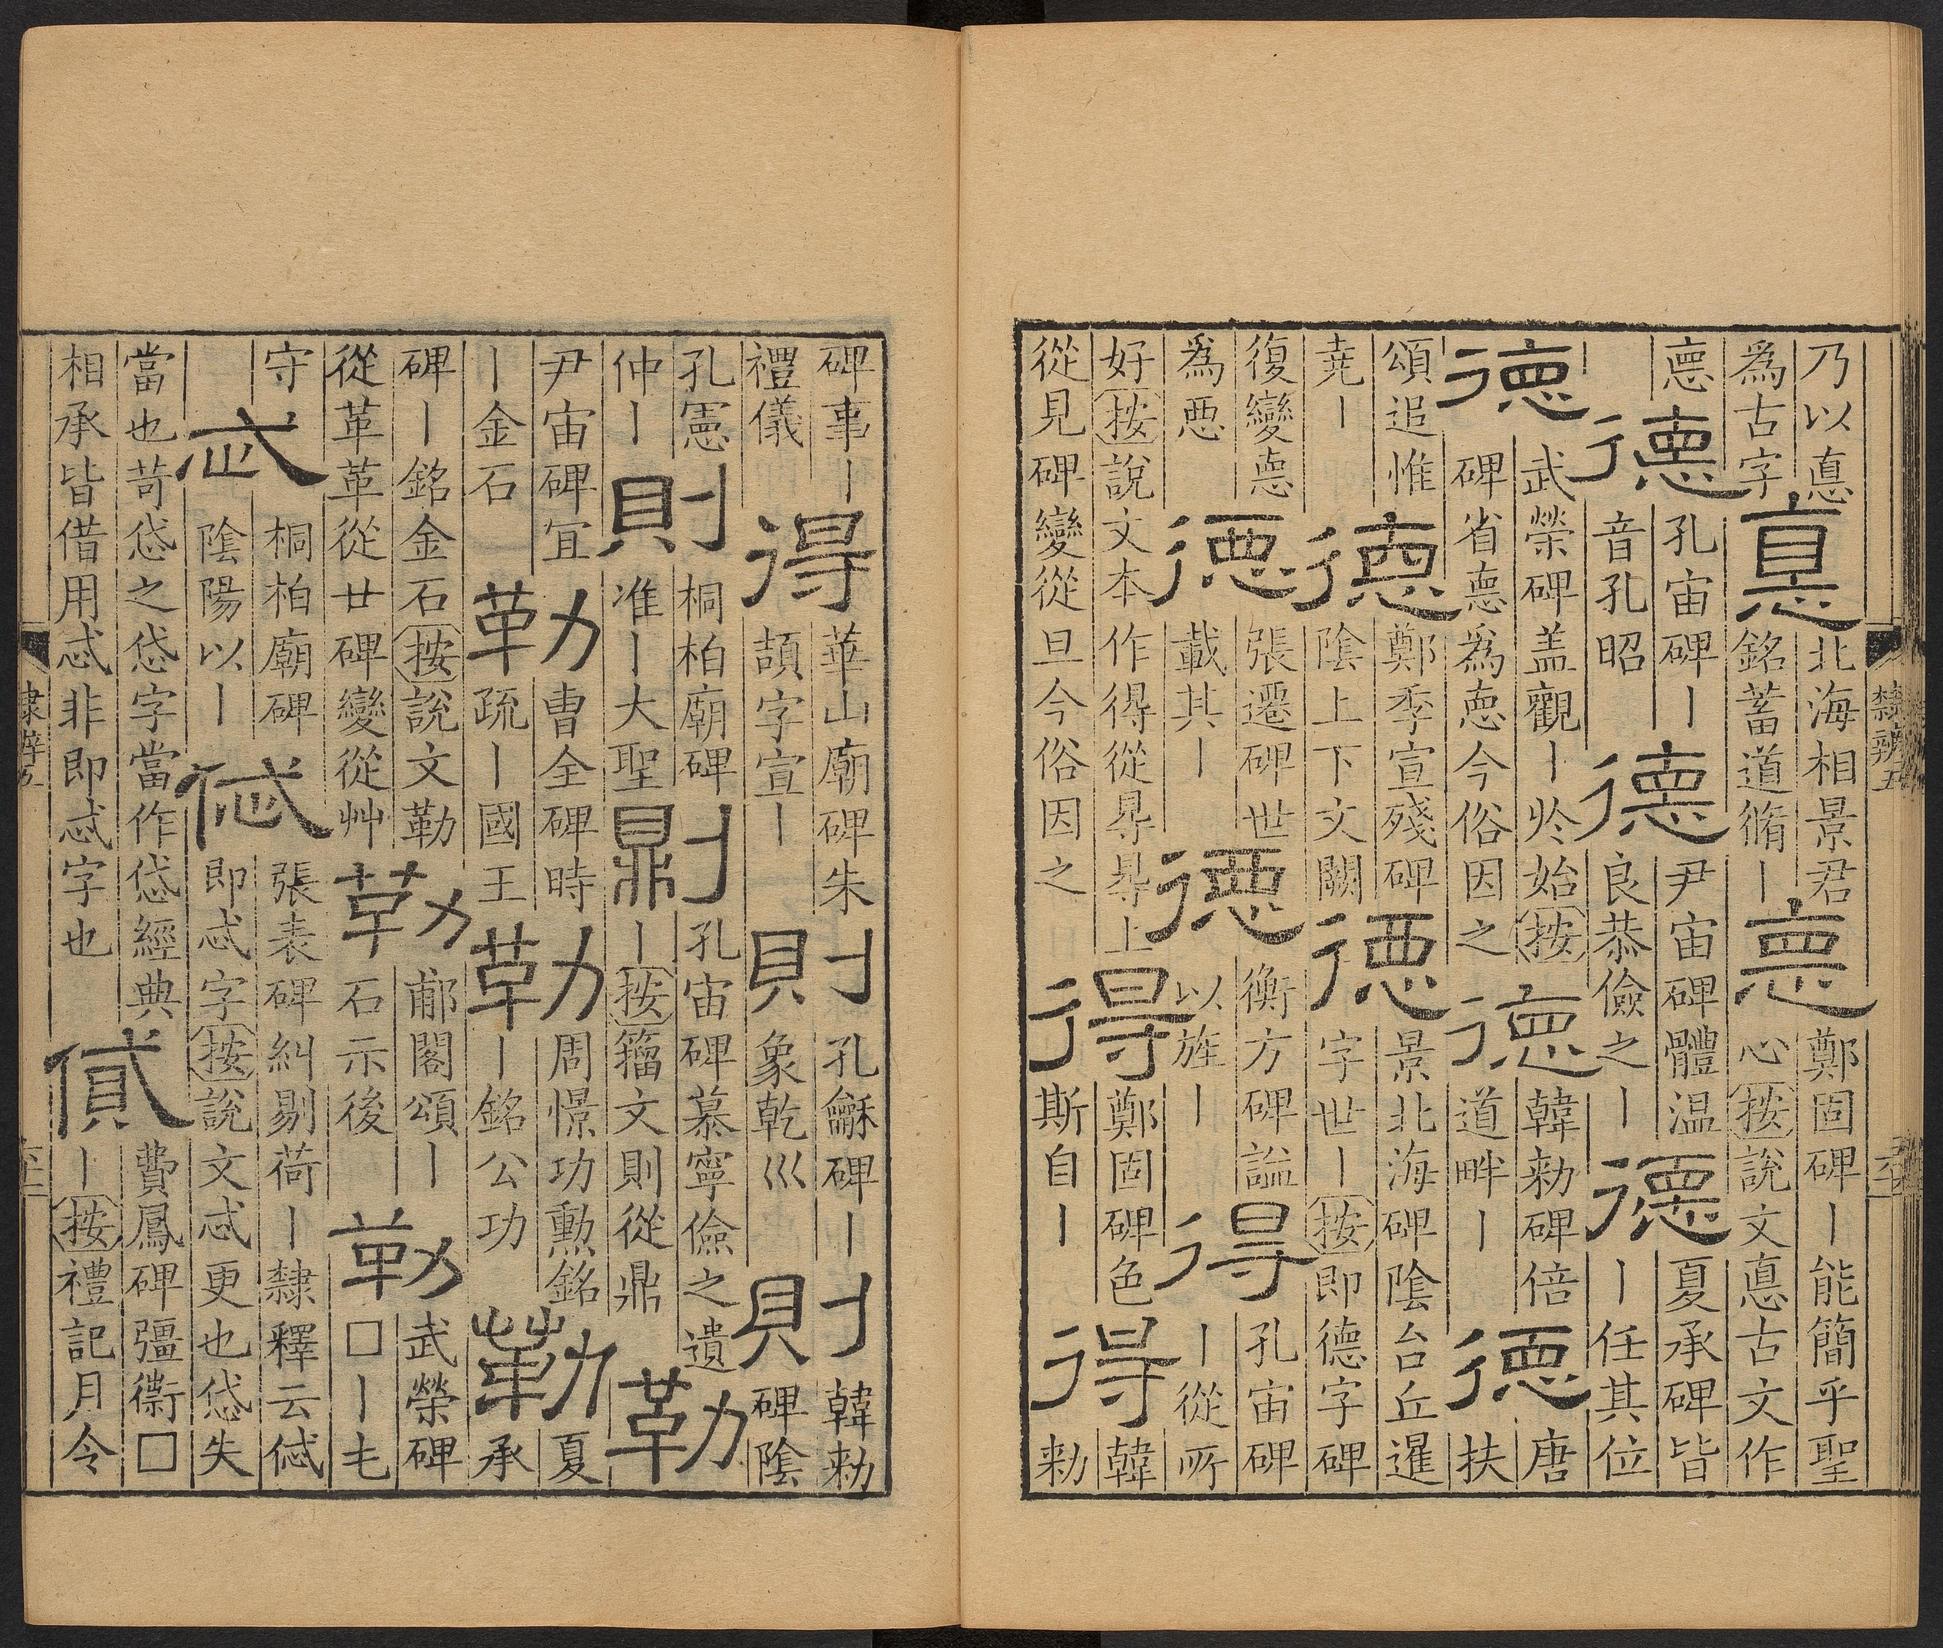 隸辨五
六十一
乃以悳
為古字
悳
北海相景君
銘蓄道脩｜
悳
鄭固碑｜能簡乎聖
心按說文悳古文作
悳
德
孔宙碑｜
音孔昭
德
尹宙碑體温
良恭儉之｜
德
夏承碑皆
｜任其位
德
武榮碑盖觀｜於始按
碑省悳為恴今俗因之
德
韓勑碑倍
道畔｜
德
唐
扶
頌追惟
尭｜
德
鄭季宣殘碑
陰上下文闕
德
景北海碑陰台丘暹
字世｜按即德字碑
復變恴
為悪
德
張遷碑世
載其｜
德
衡方碑謚
以旌｜
得
孔宙碑
｜從所
好按說文本作得從㝵㝵上
從見碑變從旦今俗因之
得
鄭固碑色
斯自｜
得
韓
勑
碑事｜
禮儀
得
華山廟碑朱
頡字宣｜
則
孔龢碑｜
象乾巛
則
韓勑
碑陰
孔憲
仲｜
則
桐柏廟碑
准｜大聖
鼎刂
孔宙碑慕寧儉之遺
｜按籀文則從鼎
勒
尹宙碑冝
｜金石
勒
曹全碑時
疏｜國王
勒
周憬功勲銘
｜銘公功
勒
夏
承
碑｜銘金石按說文勒
從革革從廿碑變從艸
勒
郙閣頌｜
石示後
勒
武榮碑
□｜乇
守
忒
桐柏廟碑
陰陽以｜
㒃
張表碑糾剔荷｜隸釋云㒃
即忒字按說文忒更也㤥失
當也苛㤥之㤥字當作㤥經典
相承皆借用忒非即忒字也
貣
費鳳碑彊衙□
｜按禮記月令